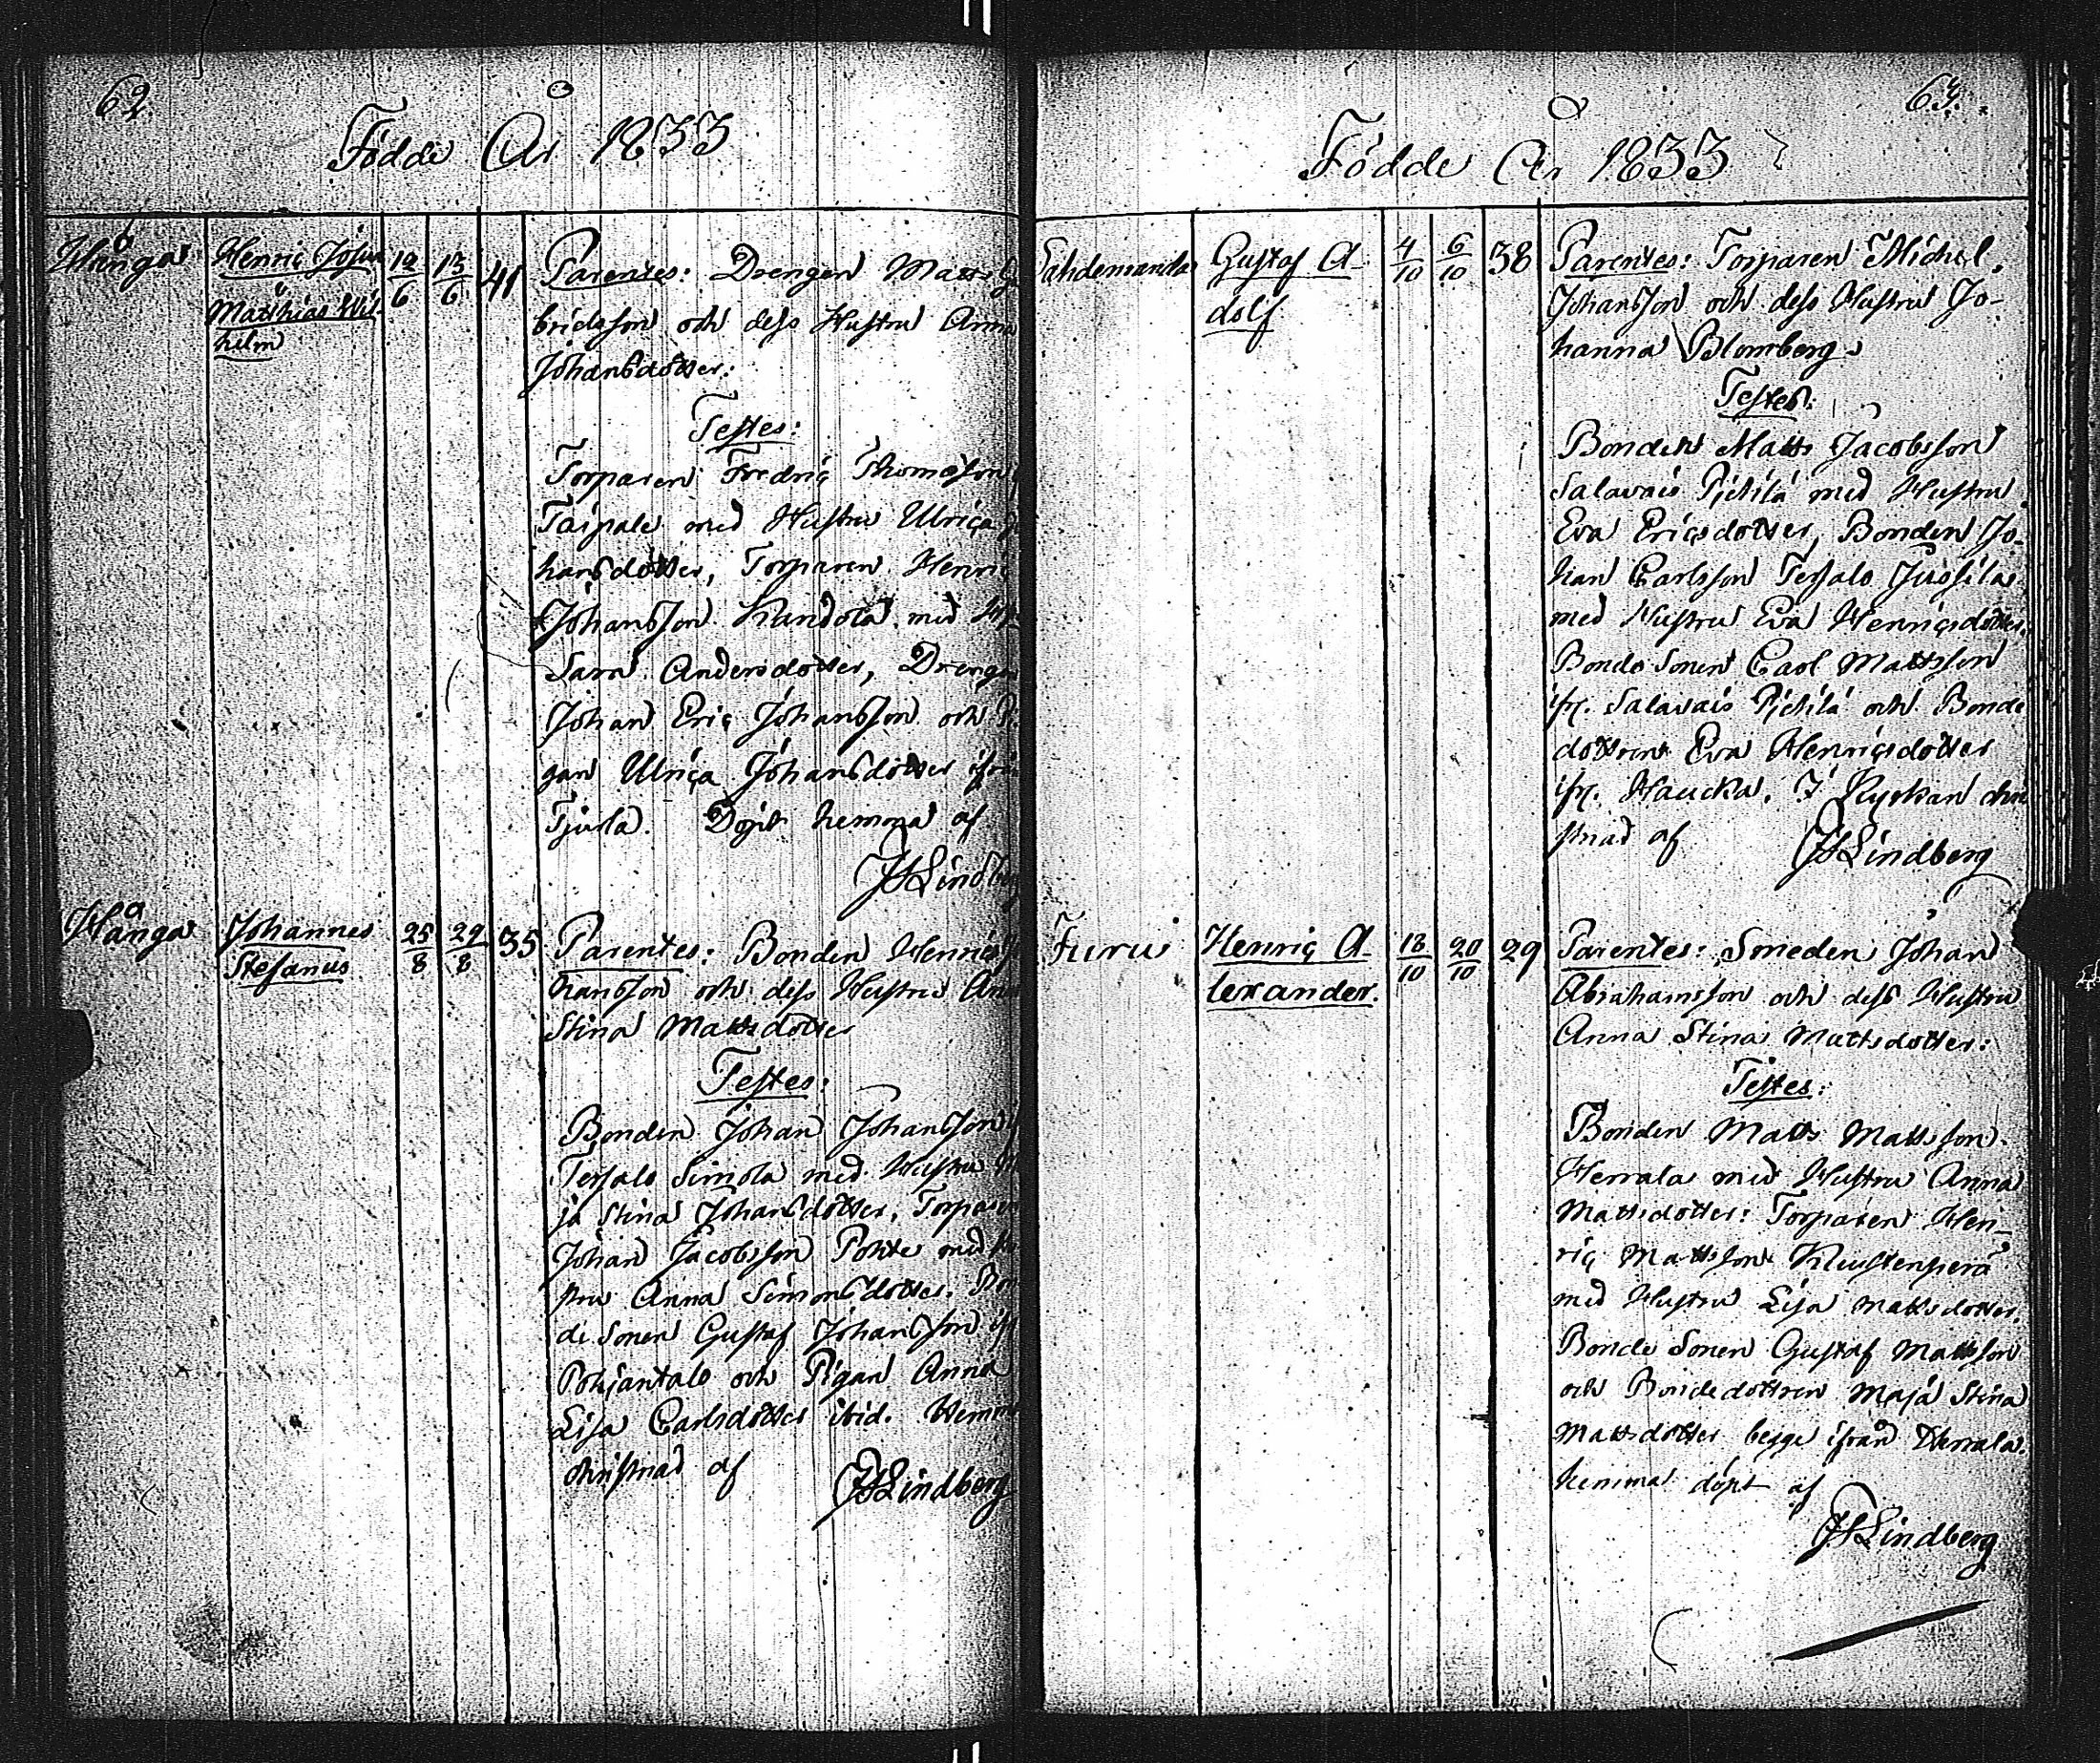 62.
Födde År 1833
Wånga
Henric Josua
Matthias Wil-
helm
12/6 13/6 41
Parentes: Drengen Matts
brielsson och dess Hustru Anna
Johansdotter.
Testes:
Torparen Fredric Thomasson
Taipale med Hustru Ulrica
hansdotter, Torparen Henric
Johansson Kandola med
Sara Andersdotter, Drengen
Johan Eric Johansson och
gan Ulrica Johansdotter ifrån
Tjurla. Döpt hemma af
Lindberg
Wånga
Johannes
Stefanus
25/8 29/8 35
Parentes: Bonden Henric
hansson och dess Hustru Anna
Stina Mattsdotter
Testes:
Bonden Johan Johansson
Tersalo Simola med Hustru
ja Stina Johansdotter, Torparen
Johan Jacobsson Pohte med
stru Anna Simonsdotter, Bon
de Sonen Gustaf Johansson
Pohjantalo och Pigan Anna
Lisa Carlsdotter ibid. Hemma
christnad af
Lindberg
63.
Födde År 1833
Gustaf A-
dolf
4/10 6/10 38
Parentes: Torparen Michel
Johansson och dess Hustru Jo-
hanna Blomberg.
Testes:
Bonden Matts Jacobsson
Salavais Pjetilä med Hustru
Eva Ericsdotter, Bonden Jo-
han Carlsson Tersalo Jussila
med Hustru Eva Henricsdotter,
Bonde Sonen Carl Mattsson
ifr. Salavais Pjetilä och Bonde
dottren Eva Henricsdotter
ifr. Haucka. I Kyrkan chri
stnad af
Lindberg
Furu
Henric A-
lexander.
18/10 20/10 29
Parentes: Smeden Johan
Abrahamsson och dess Hustru
Anna Stina Mattsdotter:
Testes:
Bonden Matts Mattsson
Herrala med Hustru Anna
Mattsdotter: Torparen Hen-
ric Mattsson
med Hustru Lisa Mattsdotter.
Bonde Sonen Gustaf Mattsson
och Bondedottren Maja Stina
Mattsdotter begge ifrån Herrala.
hemma döpt af
Lindberg